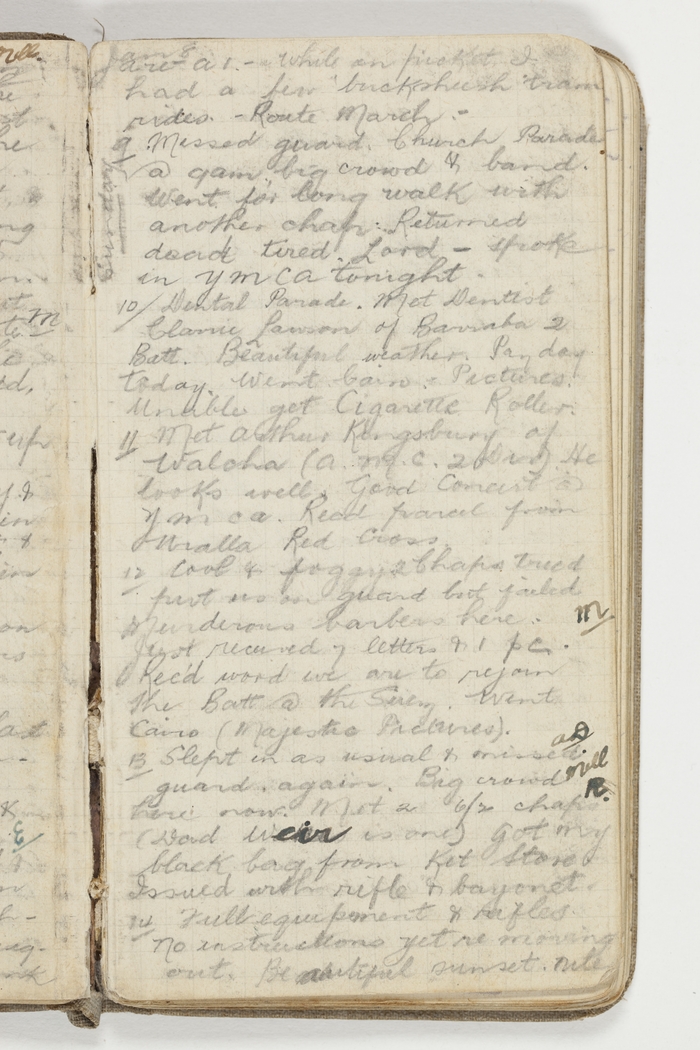 are a 1. - While on picket I
had a few "bucksheesh" tram
rides. - Route March. -
9 Missed guard. Church Parade
Sunday
a gain, big crowd & band.
Went for long walk with
another chap: Returned
dead tired. Lord - spoke
in YMCA tonight.
10/ Dental Parade. Met Dentist
Clarrie Lawson of Barraba 2
Batt. Beautiful weather. Pay day
today. Went Cairo - Pictures.
Unable get Cigarette Roller.
11 Met Arthur Kingsbury of
Walcha (A.M.C. 2 Div) He
looks well. Good Concert @
Y m ca. Recd parcel from
Uralla Red Cross.
12 Cool & foggy 2 Chaps tried
put us on guard but failed
Murderous barbers here.
Just received 7 letters & 1 pc.
M
Rec'd word we are to rejoin
the Batt @ the Serg. Went
Cairo (Majestic Pictures).
13 Slept in as usual & missed
guard. again. Big crowd
Mell
R.
here now. Met 2 6/2 chaps
(Dad Weir is one) Got my
black bag from Kit Store
Issued with rifle & bayonet.
14 Full equipment & Rifles
No instructions yet re moving
out. Beautiful sunset. nite